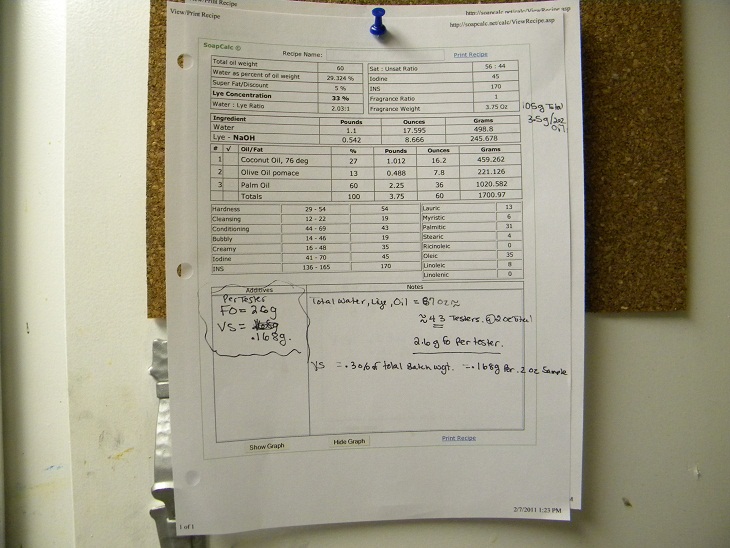 View/Print Recipe
http://soapcalc.net/calc/ViewRecipe.asp
View/Print Recipe
http://soapcalc.net/calc/ViewRecipe.asp
SoapCalc ©
Recipe Name:
Print Recipe
Total oil weight 60
Water as percent of oil weight 29.324 %
Super Fat/Discount 5 %
Lye Concentration 33 %
Water : Lye Ratio 2.03:1
Sat : Unsat Ratio 56 : 44
Iodine 45
INS 170
Fragrance Ratio 1
Fragrance Weight 3.75 Oz
105g Total
3.5g/2oz
Oil
Ingredient Pounds Ounces Grams
Water 1.1 17.595 498.8
Lye - NaOH 0.542 8.666 245.678
# √ Oil/Fat % Pounds Ounces Grams
1 Coconut Oil, 76 deg 27 1.012 16.2 459.262
2 Olive Oil pomace 13 0.488 7.8 221.126
3 Palm Oil 60 2.25 36 1020.582
Totals 100 3.75 60 1700.97
Hardness 29 - 54 54 Lauric 13
Cleansing 12 - 22 19 Myristic 6
Conditioning 44 - 69 43 Palmitic 31
Bubbly 14 - 46 19 Stearic 4
Creamy 16 - 48 35 Ricinoleic 0
Iodine 41 - 70 45 Oleic 35
INS 136 - 165 170 Linoleic 8
Linolenic 0
Additives
Per Tester
FO = 2.6g
VS =
.168g.
Notes
Total Water, Lye, Oil = 87 oz ≈
≈ 43 Testers. @ 2 oz Total
2.6g FO Per tester.
VS = .30% of total Batch wgt. = .168g Per 2 oz Sample
Show Graph
Hide Graph
Print Recipe
1 of 1
2/7/2011 1:23 PM